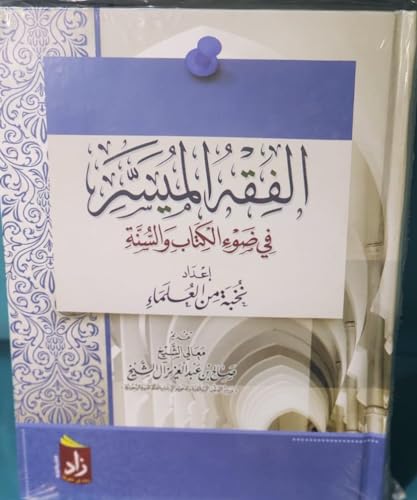 الفِقْهُ المُيَسَّر
فِي ضَوْءِ الكِتَابِ وَالسُّنَّةِ
إعْدَاد
نُخْبَةٌ مِنَ العُلَمَاءِ
تقديم
معالي الشيخ
صالح بن عبد العزيز آل الشيخ
زاد